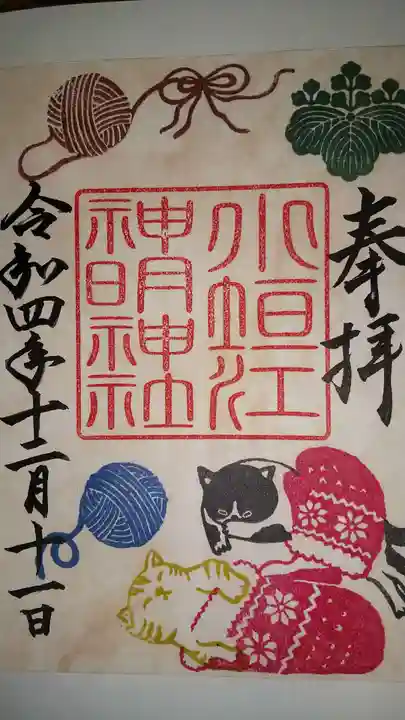 奉拝
小垣江
神明神社
令和四年十二月十一日